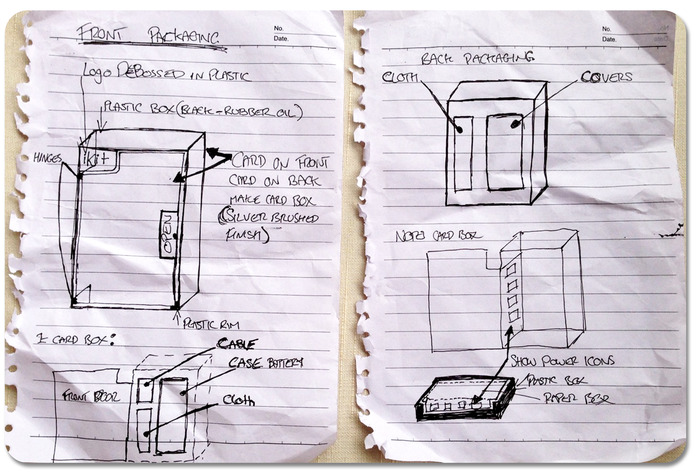 FRONT PACKAGING
No.
Date.
LOGO DEBOSSED IN PLASTIC
PLASTIC BOX (BLACK-RUBBER OIL)
HINGES
kit
CARD ON FRONT
CARD ON BACK
MAKE CARD BOX
(SILVER BRUSHED
FINISH)
OPEN
PLASTIC RIM
1 CARD BOX:
CABLE
CASE BATTERY
FRONT DOOR
Cloth
No.
Date.
BACK PACKAGING
CLOTH
COVERS
CARD BOX
SHOW POWER ICONS
PLASTIC BOX
PAPER BOX